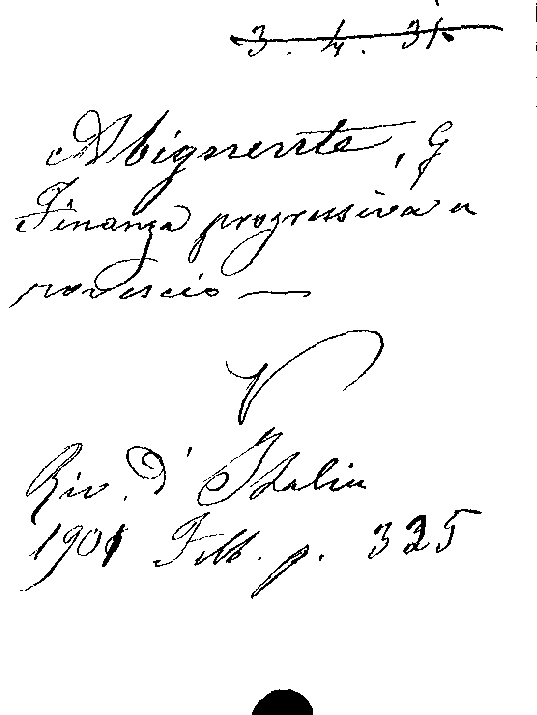 3. 4. 31.
Abignente, G
Finanza progressiva a
rovescio —
V
Riv. d' Italia
1901 Febb. p. 325